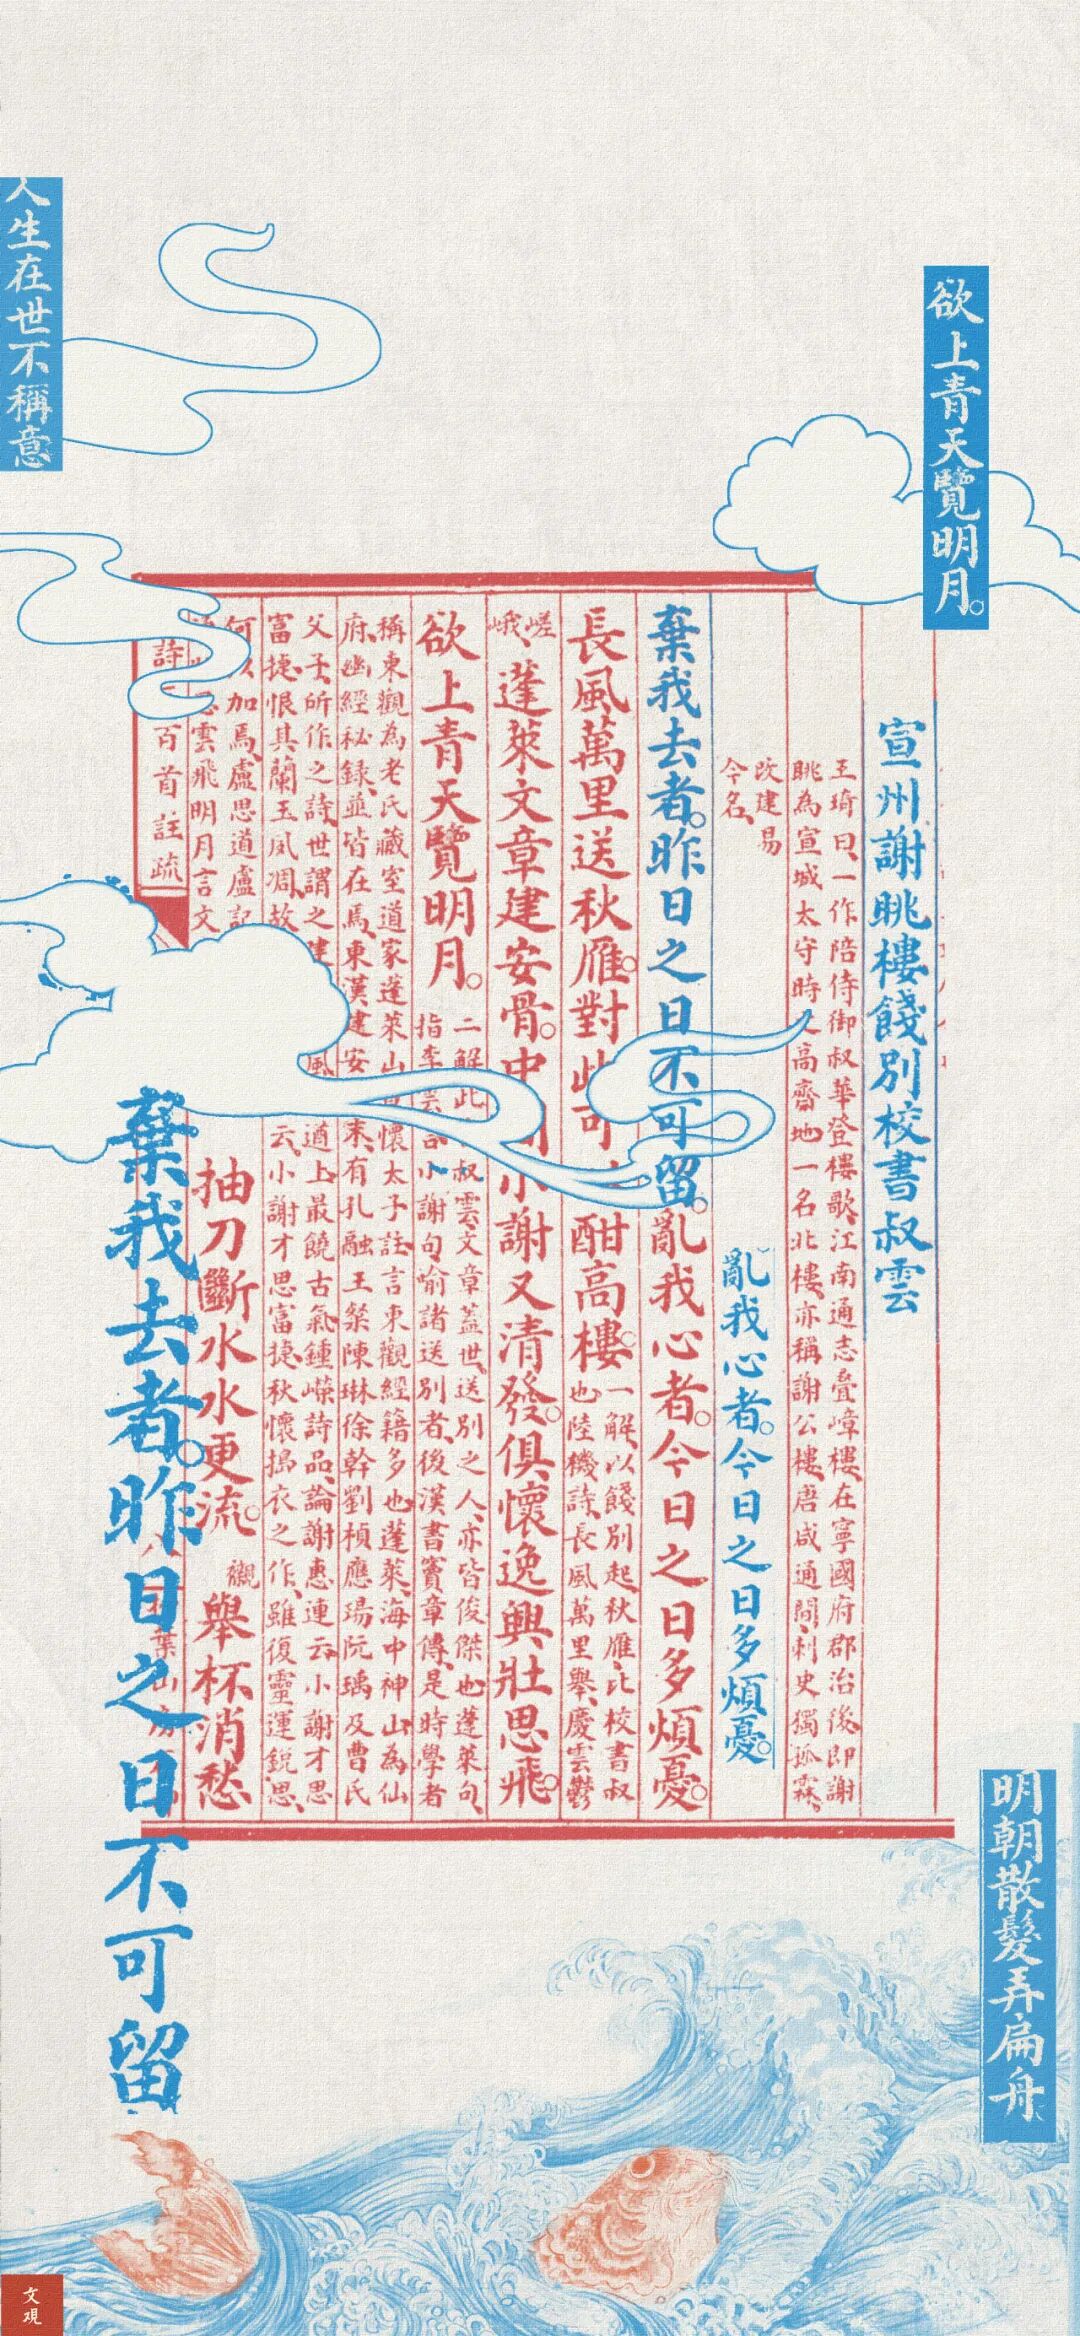 人生在世不稱意
欲上青天覽明月。
宣州謝朓樓餞別校書叔雲
王琦曰、一作陪侍御叔華登樓歌、江南通志、疊嶂樓、在寧國府郡治後、即謝
朓為宣城太守時之高齋地、一名北樓、亦稱謝公樓、唐咸通間、刺史獨孤霖、
改建易
今名、
亂我心者。今日之日多煩憂。
棄我去者。昨日之日不可留。亂我心者。今日之日多煩憂。
長風萬里送秋雁。對此可 酣高樓。
一解、以餞別起、秋雁、比校書叔
也、陸機詩、長風萬里舉、慶雲鬱
嵯
峨、
蓬萊文章建安骨。中 小謝又清發。俱懷逸興壯思飛。
欲上青天覽明月。
二解、此 叔雲、文章蓋世、送別之人、亦皆俊傑也、蓬萊句、
指李雲言、小謝句、喻諸送別者、後漢書竇章傳、是時學者
稱東觀為老氏藏室、道家蓬萊山、 懷太子註、言東觀經籍多也、蓬萊、海中神山、為仙
府、幽經秘錄、並皆在焉、東漢建安末、有孔融王粲陳琳徐幹劉楨應瑒阮瑀及曹氏
父子、所作之詩、世謂之建 風 遒上、最饒古氣、鍾嶸詩品、論謝惠連云、小謝才思
富捷、恨其蘭玉夙凋、故 云、小謝才思富捷、秋懷擣衣之作、雖復靈運銳思、
何以加焉、盧思道盧記
雲飛明月言文
抽刀斷水水更流。
觀
舉杯消愁
詩 百首註疏
葉山房
棄我去者。昨日之日不可留
明朝散髮弄扁舟
文观